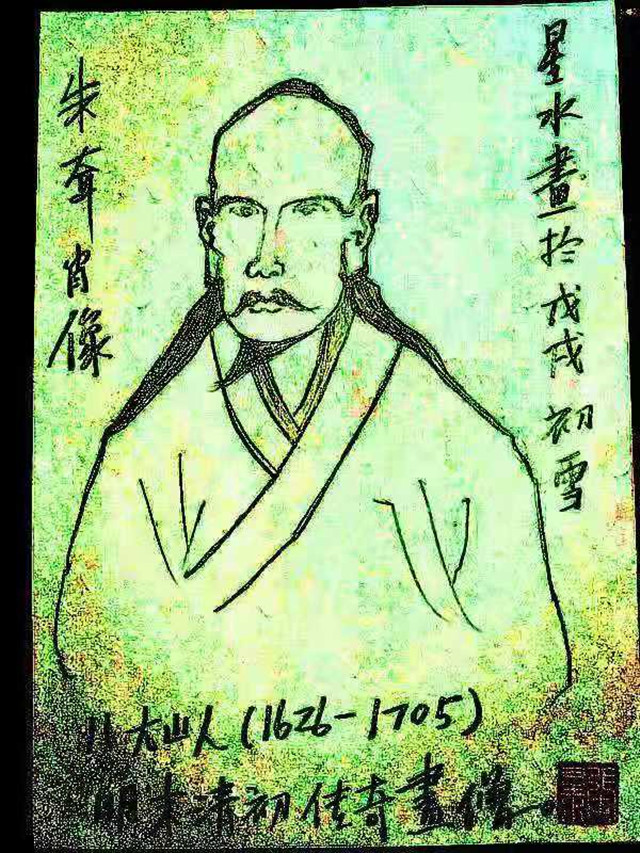 朱耷肖像
星水畫於戊戌初雪
八大山人(1626-1705)
明末清初传奇畫僧。